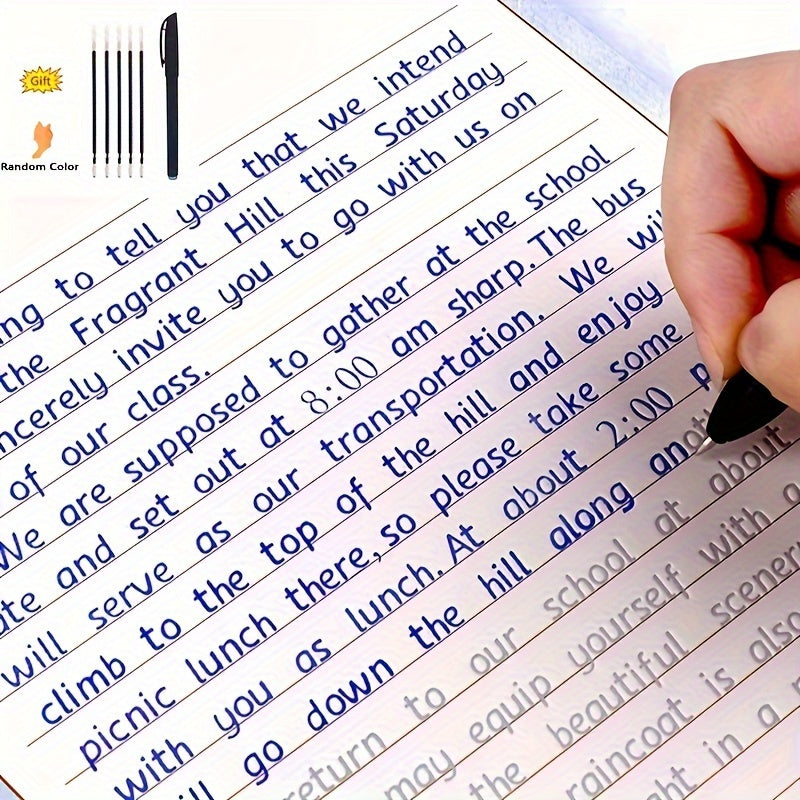 Gift
Random Color
ng to tell you that we intend
the Fragrant Hill this Saturday
ncerely invite you to go with us on
of our class.
We are supposed to gather at the school
ate and set out at 8:00 am sharp. The bus
will serve as our transportation. We wil
climb to the top of the hill and enjoy
picnic lunch there, so please take some
with you as lunch. At about 2:00 p
ill go down the hill along anoth
return to our school at about
may equip yourself with a
the beautiful scener
raincoat is also
ght in a